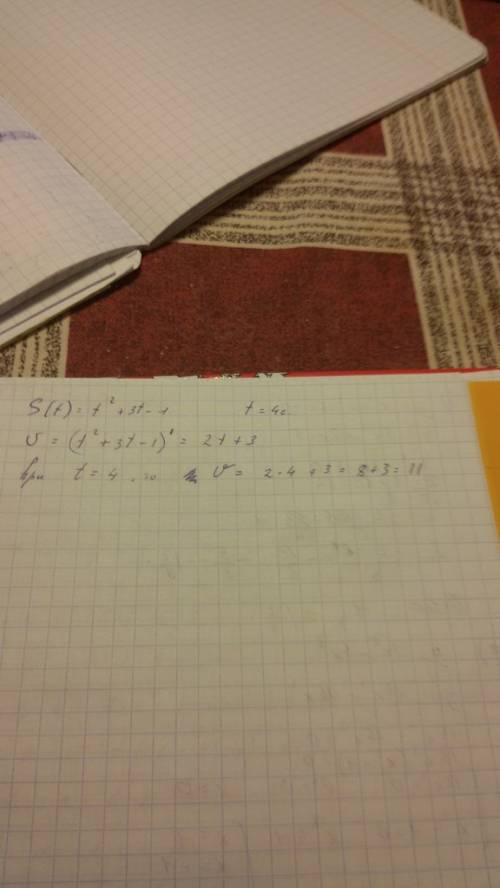 S(t) = t² + 3t - 1 t = 4c
υ = (t² + 3t - 1)' = 2t + 3
При t = 4, то υ = 2 · 4 + 3 = 8 + 3 = 11